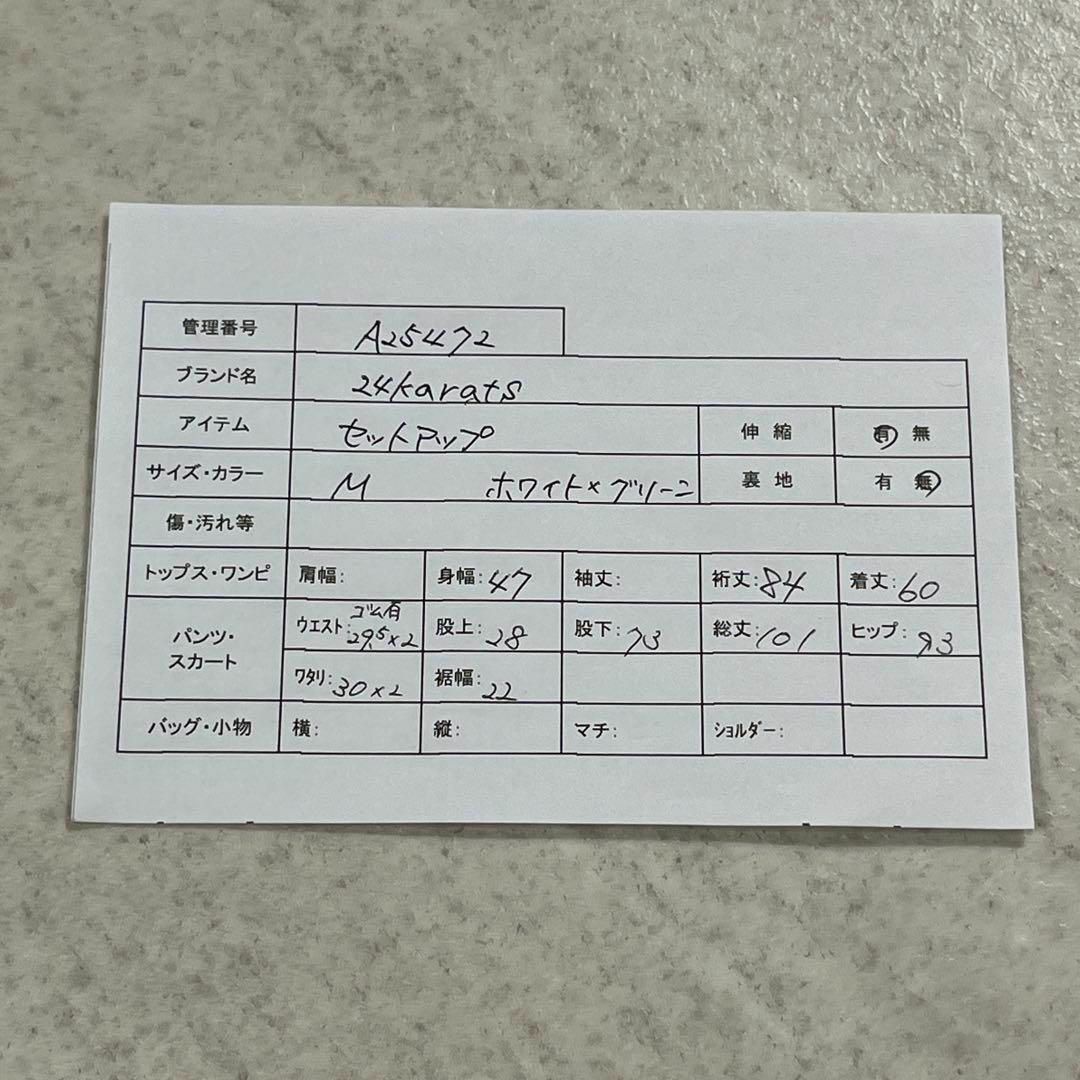 管理番号 A25472
ブランド名 24karats
アイテム セットアップ 伸縮 有 無
サイズ・カラー M ホワイト×グリーン 裏地 有 無
傷・汚れ等
トップス・ワンピ 肩幅: 身幅:47 袖丈: 裄丈:84 着丈:60
パンツ・スカート ウエスト:ゴム有 29.5×2 股上:28 股下:73 総丈:101 ヒップ:93
ワタリ:30×2 裾幅:22
バッグ・小物 横: 縦: マチ: ショルダー: